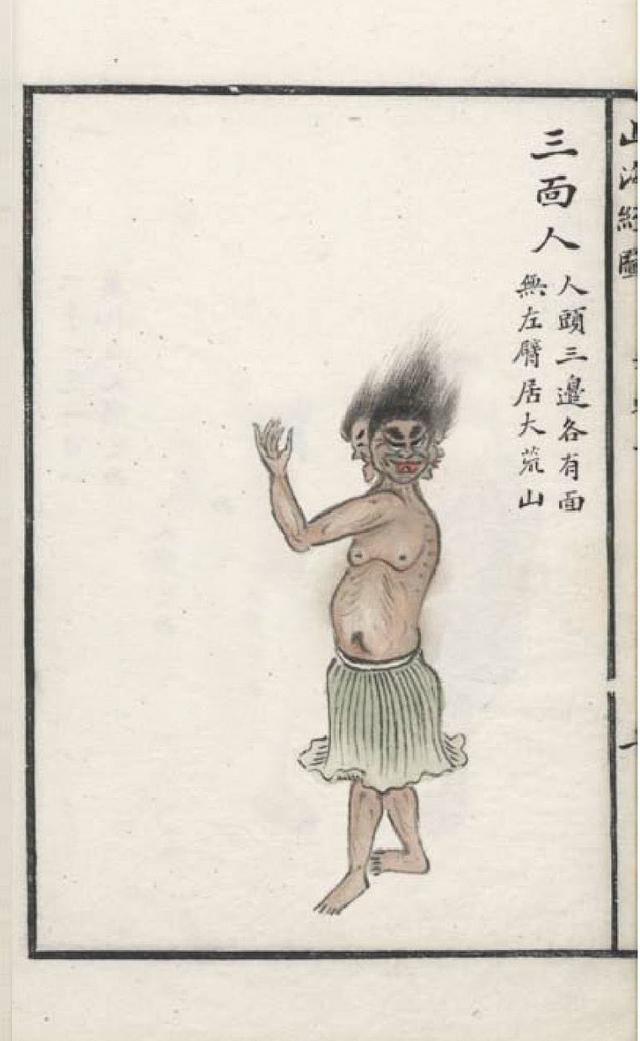 山海經圖
三面人
人頭三邊各有面
無左臂居大荒山